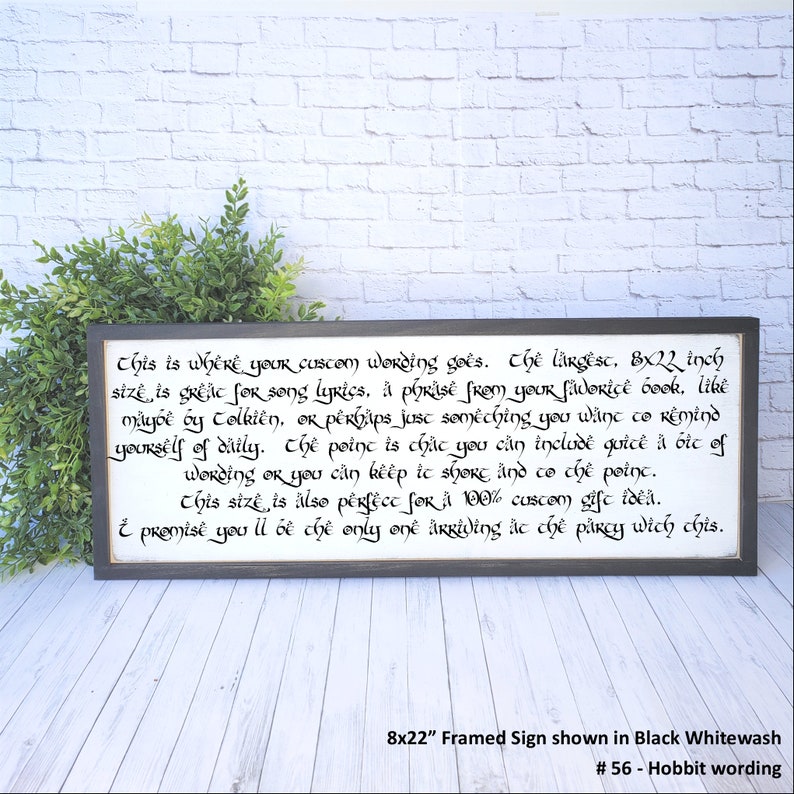 This is where your custom wording goes. The largest, 8x22 inch
size is great for song lyrics, a phrase from your favorite book, like
maybe by Tolkien, or perhaps just something you want to remind
yourself of daily. The point is that you can include quite a bit of
wording or you can keep it short and to the point.
This size is also perfect for a 100% custom gift idea.
I promise you ll be the only one arriving at the party with this.
8x22” Framed Sign shown in Black Whitewash
# 56 - Hobbit wording